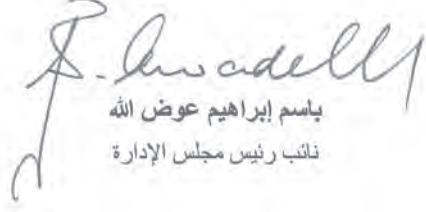 باسم إبراهيم عوض الله
نائب رئيس مجلس الإدارة